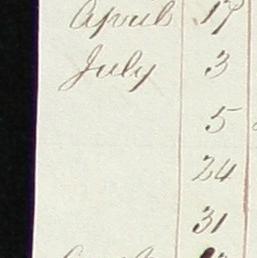 April 17
July 3
5
24
31